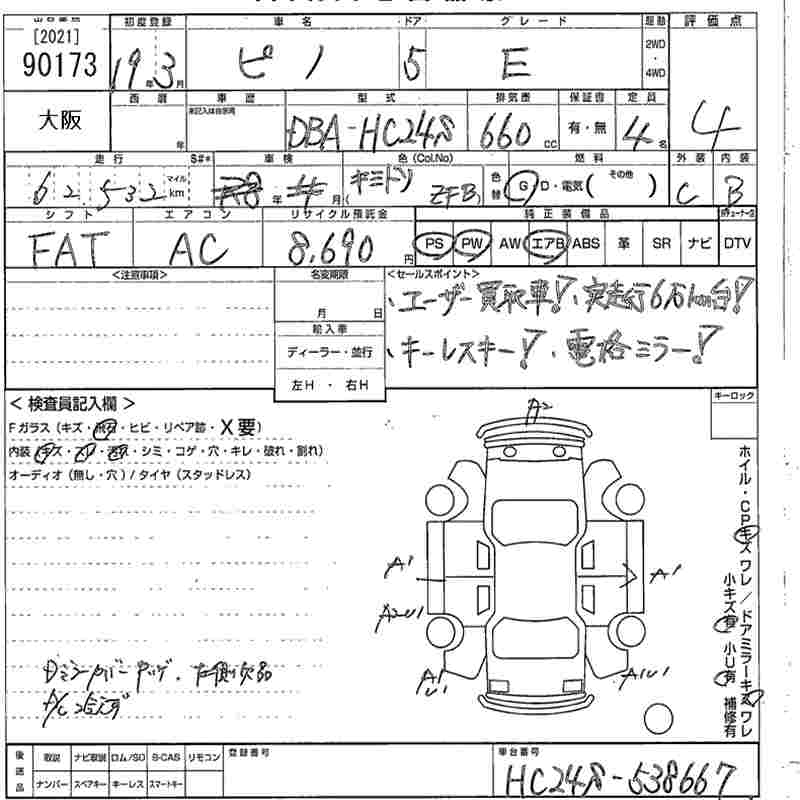 初度登録 車名 ドア グレード 駆動 評価点
[2021]
90173 19年3月 ピノ 5 E 2WD・4WD 4
大阪 西暦 車歴 型式 排気量 保証書 定員
未記入は自家用
年 DBA-HC24S 660cc 有・無 4名
走行 S#* 車検 色(Col.No) 燃料 外装 内装
62,532 マイル km 年 月( ZFB) 色替 G・D・電気( その他 ) C B
シフト エアコン リサイクル預託金 純正装備品
FAT AC 8,690円 PS PW AW エアB ABS 革 SR ナビ DTV
<注意事項> 名変期限 <セールスポイント>
月 日
、ユーザー買取車!、実走行6万km台!
輸入車
ディーラー・並行
、キーレスキー!、電格ミラー!
左H・右H
<検査員記入欄> キーロック
Fガラス(キズ・飛石・ヒビ・リペア跡・X要)
内装(キズ・スレ・汚れ・シミ・コゲ・穴・キレ・破れ・割れ)
オーディオ(無し・穴)/タイヤ(スタッドレス)
A2
A1 A1
A2U1
A1U1 A1U1
ホイル・CPキズ ワレ/ドアミラーキズ ワレ
小キズ有 小U有 補修有
Dミラーカバーキズ、右側欠品
後送品 取説 ナビ取説 ロム/SD B-CAS リモコン 登録番号 車台番号
ナンバー スペアキー キーレス スマートキー HC24S-538667